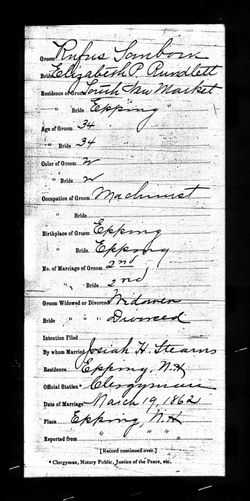 Groom Rufus Sanborn
Bride Elizabeth P. Rundlett
Residence of Groom South New Market
" " Bride Epping
Age of Groom 34
" " Bride 34
Color of Groom W
" " Bride W
Occupation of Groom Machinist
" " Bride
Birthplace of Groom Epping
" " Bride Epping
No. of Marriage of Groom 2nd
" " Bride 2nd
Groom Widowed or Divorced Widower
Bride " " " Divorced
Intention Filed
By whom Married Josiah H. Stearns
Residence Epping, N.H.
Official Station* Clergyman
Date of Marriage March 19, 1862
Place Epping, N.H.
Reported from " "
[Record continued over.]
* Clergyman, Notary Public, Justice of the Peace, etc.